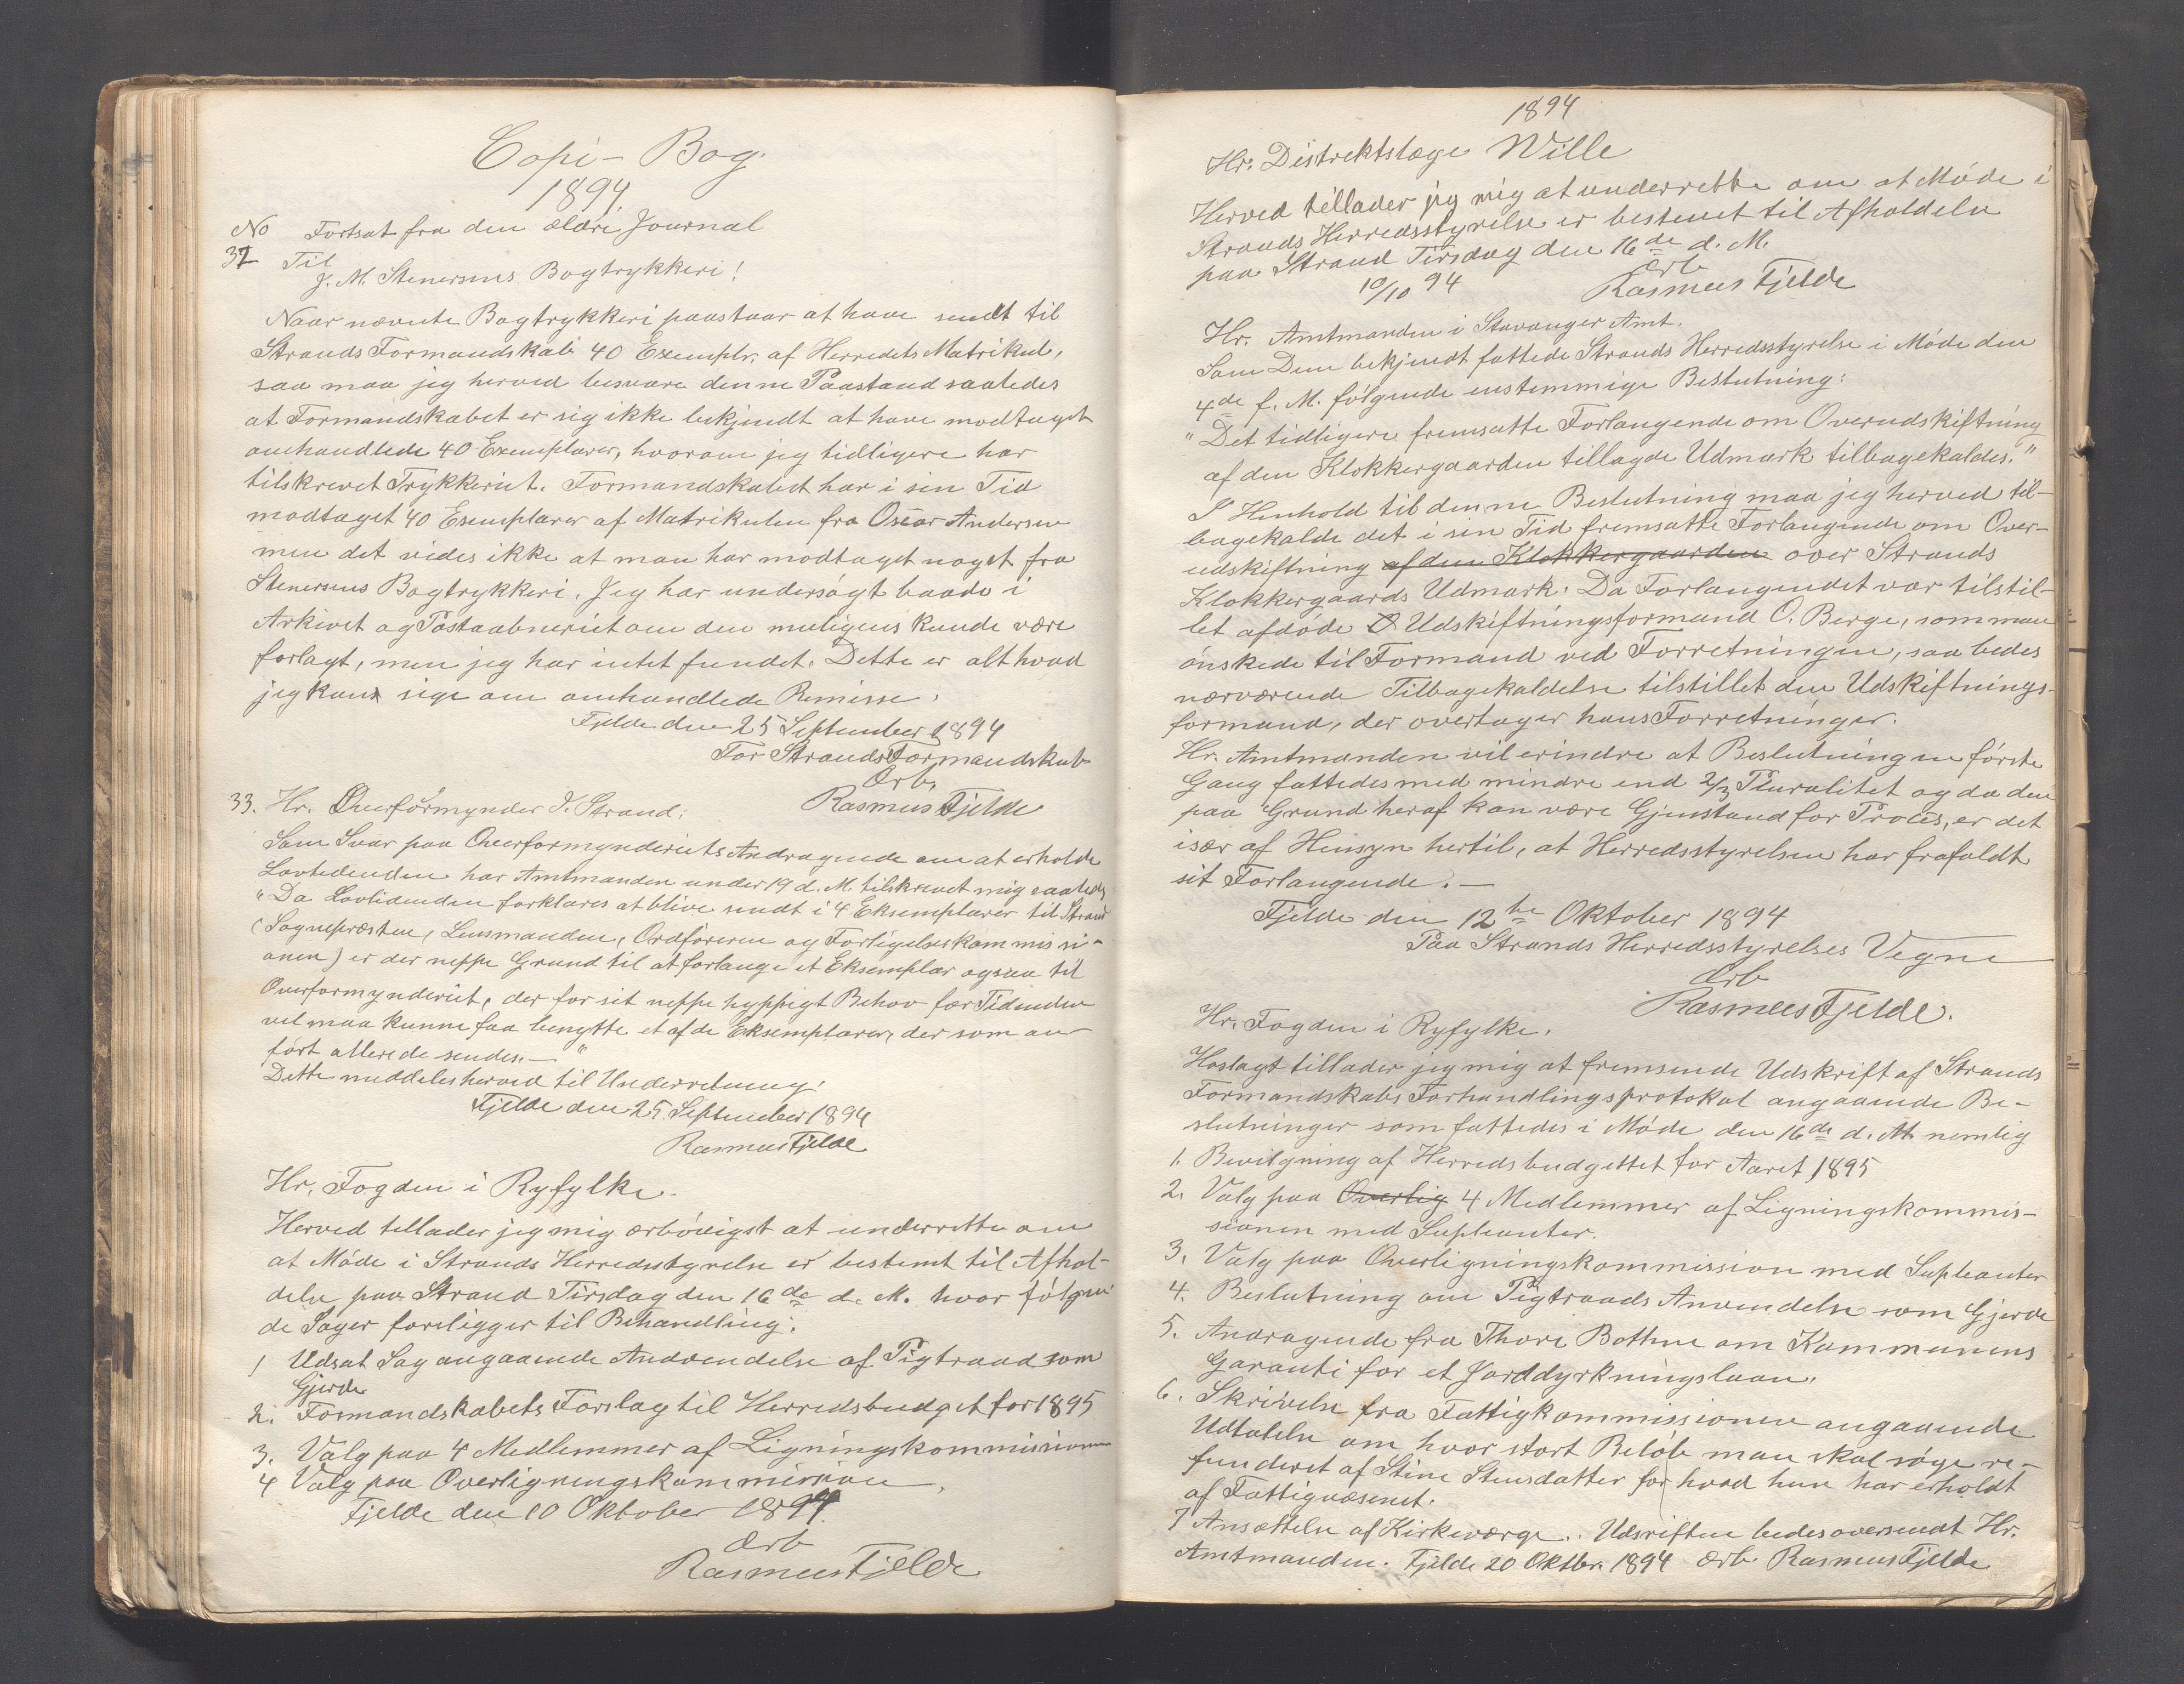 Copi-Bog.
1894.
No Fortsat fra den ældre Journal
32 Til
J. M. Stenersens Bogtrykkeri!
Naar nævnte Bogtrykkeri paastaar at have sendt til
Strands Formandskab 40 Exemplr. af Herredets Matrikul,
saa maa jeg herved besvare denne Paastand saaledes
at Formandskabet er sig ikke bekjendt at have modtaget
omhandlede 40 Exemplarer, hvorom jeg tidligere har
tilskrevet Trykkeriet. Formandskabet har i sin Tid
modtaget 40 Exemplarer af Matrikulen fra Oscar Andersen
men det vides ikke at man har modtaget noget fra
Stenersens Bogtrykkeri. Jeg har undersøgt baade i
Arkivet og Postaabneriet om den muligens kunde være
forlagt, men jeg har intet fundet. Dette er alt hvad
jeg kan sige om omhandlede Remisse.
Fjelde den 25 September 1894
For Strands Formandskab
Ærb.
Rasmus Fjelde
33. Hr. Overformynder I. Strand.
Som Svar paa Overformynderiets Andragende om at erholde
Lovtidenden har Amtmanden under 19 d. M. tilskrevet mig saaledes
"Da Lovtidenden forklares at blive sendt i 4 Eksemplarer til Strand
(Sognepræsten, Lensmanden, Ordføreren og Forligelseskommissi-
onen) er der neppe Grund til at forlange et Eksemplar ogsaa til
Overformynderiet, der for sit neppe hyppigt Behov for Tidenden
vel maa kunne faa benytte et af de Eksemplarer, der som an-
ført allerede sendes.—"
Dette meddeles herved til Underretning!
Fjelde den 25 September 1894
Rasmus Fjelde
Hr. Fogden i Ryfylke.
Herved tillader jeg mig ærbødigst at underrette om
at Møde i Strands Herredsstyrelse er bestemt til Afhol-
delse paa Strand Tirsdag den 16de d. M. hvor følgen
de Sager foreligger til Behandling:
1 Udsat Sag angaaende Andvendelse af Pigtraad som
Gjerde
2. Formandskabets Forslag til Herredsbudget for 1895
3. Valg paa 4 Medlemmer af Ligningskommissionen
4 Valg paa Overligningskommission.
Fjelde den 10 Oktober 1894.
Ærb
Rasmus Fjelde
1894
Hr. Distriktslæge Wille
Herved tillader jeg mig at underrette om at Møde i
Strands Herredsstyrelse er bestemt til Afholdelse
paa Strand Tirsdag den 16de d. M.
10/10 94 Ærb
Rasmus Fjelde
Hr. Amtmanden i Stavanger Amt.
Som Dem bekjendt fattede Strands Herredsstyrelse i Møde den
4de f. M. følgende enstemmige Beslutning:
"Det tidligere fremsatte Forlangende om Overudskiftning
af den Klokkergaarden tillagde Udmark tilbagekaldes."
I Henhold til denne Beslutning maa jeg herved til-
bagekalde det i sin Tid fremsatte Forlangende om Over-
udskiftning af den Klokkergaarden over Strands
Klokkergaards Udmark. Da Forlangendet var tilstil-
let afdøde O Udskiftningsformand O. Berge, som man
ønskede til Formand ved Forretningen, saa bedes
nærværende Tilbagekaldelse tilstillet den Udskiftnings-
formand, der overtager hans Forretninger.
Hr. Amtmanden vil erindre at Beslutningen første
Gang fattedes med mindre end 2/3 Pluralitet og da den
paa Grund heraf kan være Gjenstand for Proces, er det
især af Hensyn hertil, at Herredsstyrelsen har frafaldt
sit Forlangende.—
Fjelde den 12te Oktober 1894
Paa Strands Herredsstyrelses Vegne
Ærb
Rasmus Fjelde.
Hr. Fogden i Ryfylke.
Hoslagt tillader jeg mig at fremsende Udskrift af Strands
Formandskabs Forhandlingsprotokol angaaende Be-
slutninger som fattedes i Møde den 16de d. M. nemlig
1. Bevilgning af Herredsbudgettet for Aaret 1895
2. Valg paa Overlig 4 Medlemmer af Ligningskommis-
sionen med Supleanter.
3. Valg paa Overligningskommission med Supleanter
4. Beslutning om Pigtraads Anvendelse som Gjerde
5. Andragende fra Thore Bothne om Kommunens
Garanti for et Jorddyrkningslaan.
6. Skrivelse fra Fattigkommissionen angaaende
Udtalelse om hvor stort Beløb man skal søge re-
funderet af Stine Stensdatter for hvad hun har erholdt
af Fattigvæsenet.
7 Ansættelse af Kirkeværge. Udsriften bedes oversendt Hr.
Amtmanden. Fjelde 20 Oktbr. 1894 Ærb. Rasmus Fjelde